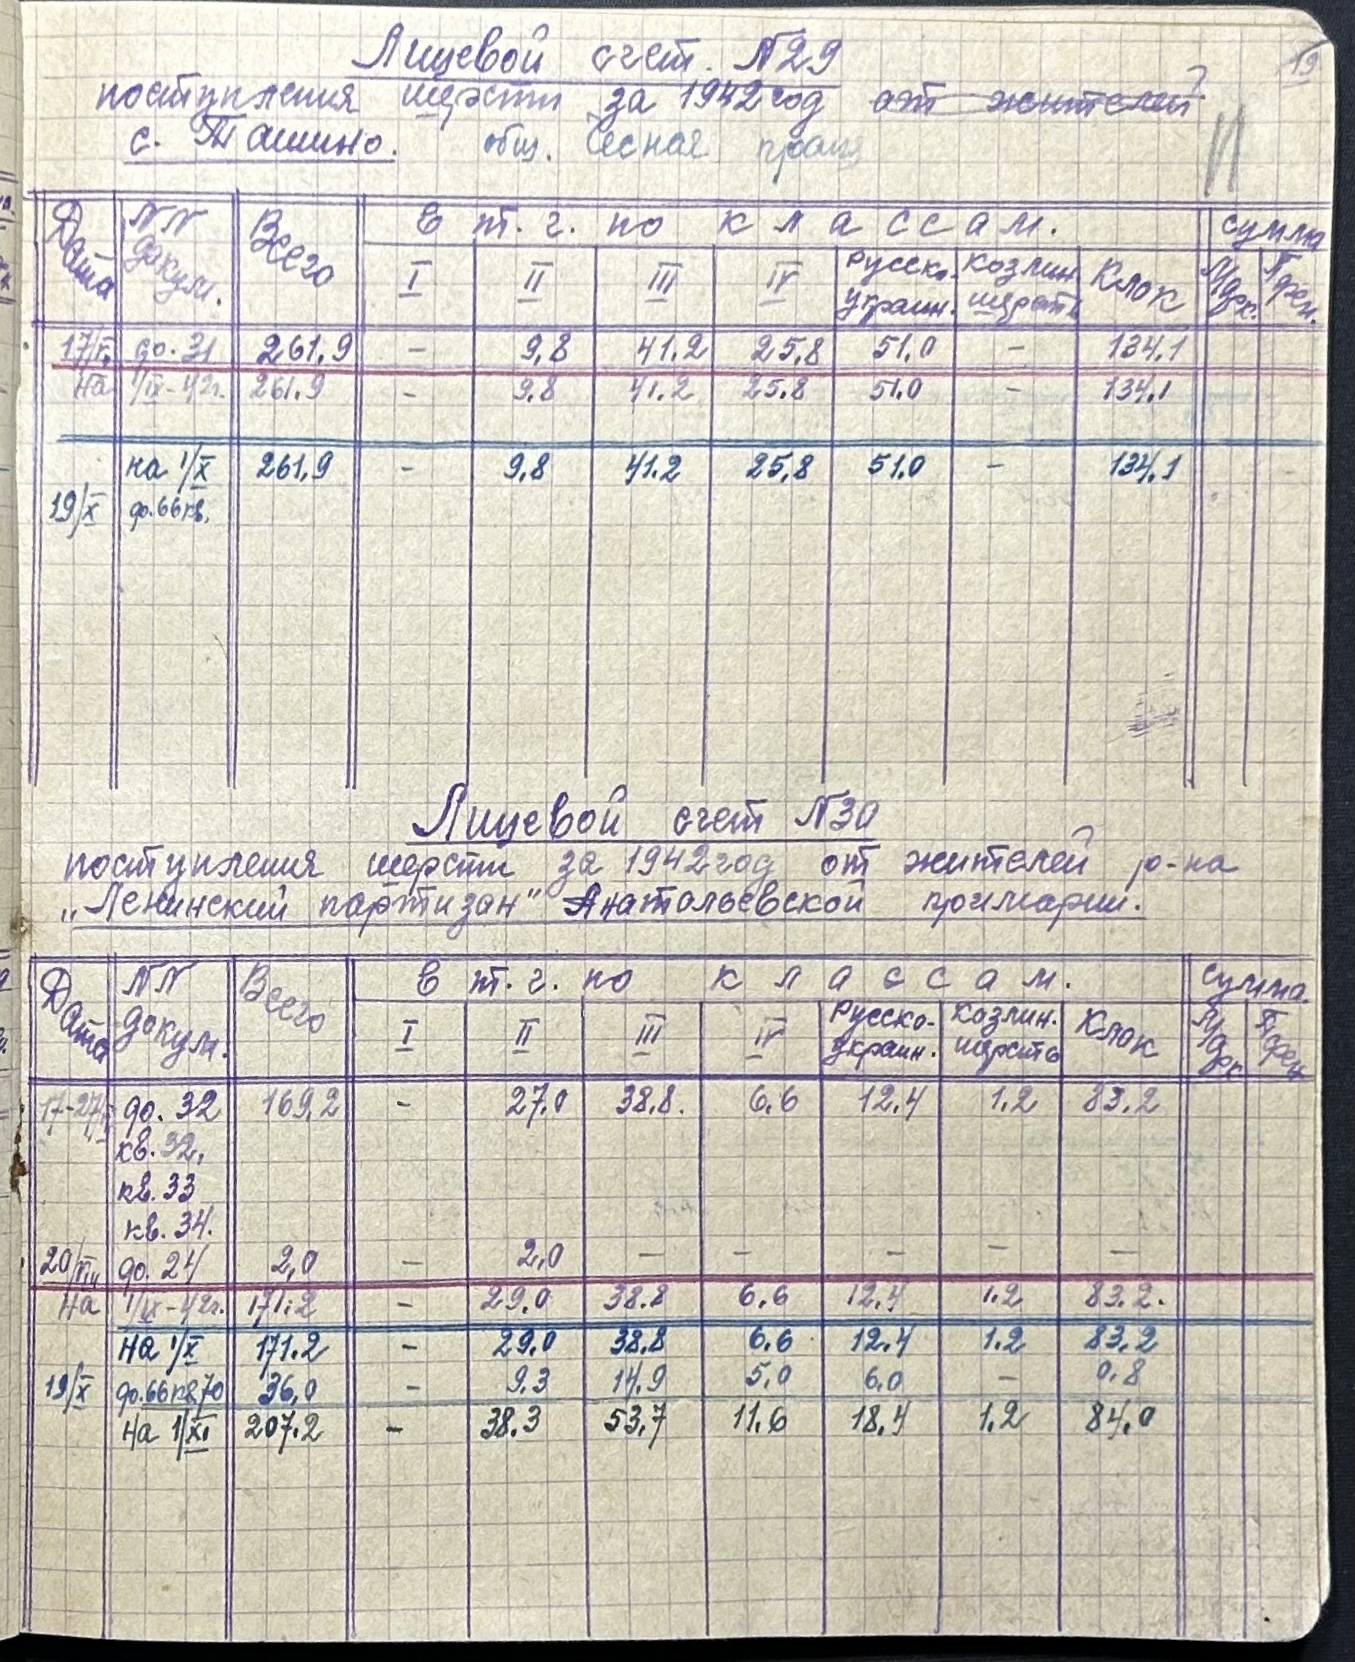 19
Лицевой счет N29
поступления шерсти за 1942 год от жителей
с. Ташино. общ. Лесная
Дата NN докум. Всего в т. ч. по классам. сумма
I II III IV Русско-украин. Козлин. шерсть Клок
17/ до. 31 261,9 - 9,8 41.2 25,8 51.0 - 134,1
на 1/IX-42г. 261.9 - 9.8 41.2 25.8 51.0 - 134,1
на 1/X 261,9 - 9.8 41.2 25,8 51.0 - 134,1
19/X до.66 кв.
Лицевой счет N30
поступления шерсти за 1942 год от жителей р-на
„Ленинский партизан" Анатольевской примарии.
Дата NN докум. Всего в т. ч. по классам. сумма
I II III IV Русско-украин. Козлин. шерсть Клок
17-27/ до. 32 169,2 - 27,0 38.8. 6.6 12,4 1.2 83.2
кв. 32,
кв. 33
кв. 34.
20/ до. 24 2,0 - 2,0 - - - - -
на 1/IX-42г. 171.2 - 29.0 38.8 6.6 12.4 1.2 83.2.
на 1/X 171.2 - 29.0 38,8 6.6 12.4 1.2 83.2
19/X до.66 кв 70 36,0 - 9.3 14.9 5,0 6.0 - 0,8
на 1/XI 207.2 - 38.3 53,7 11.6 18,4 1.2 84,0